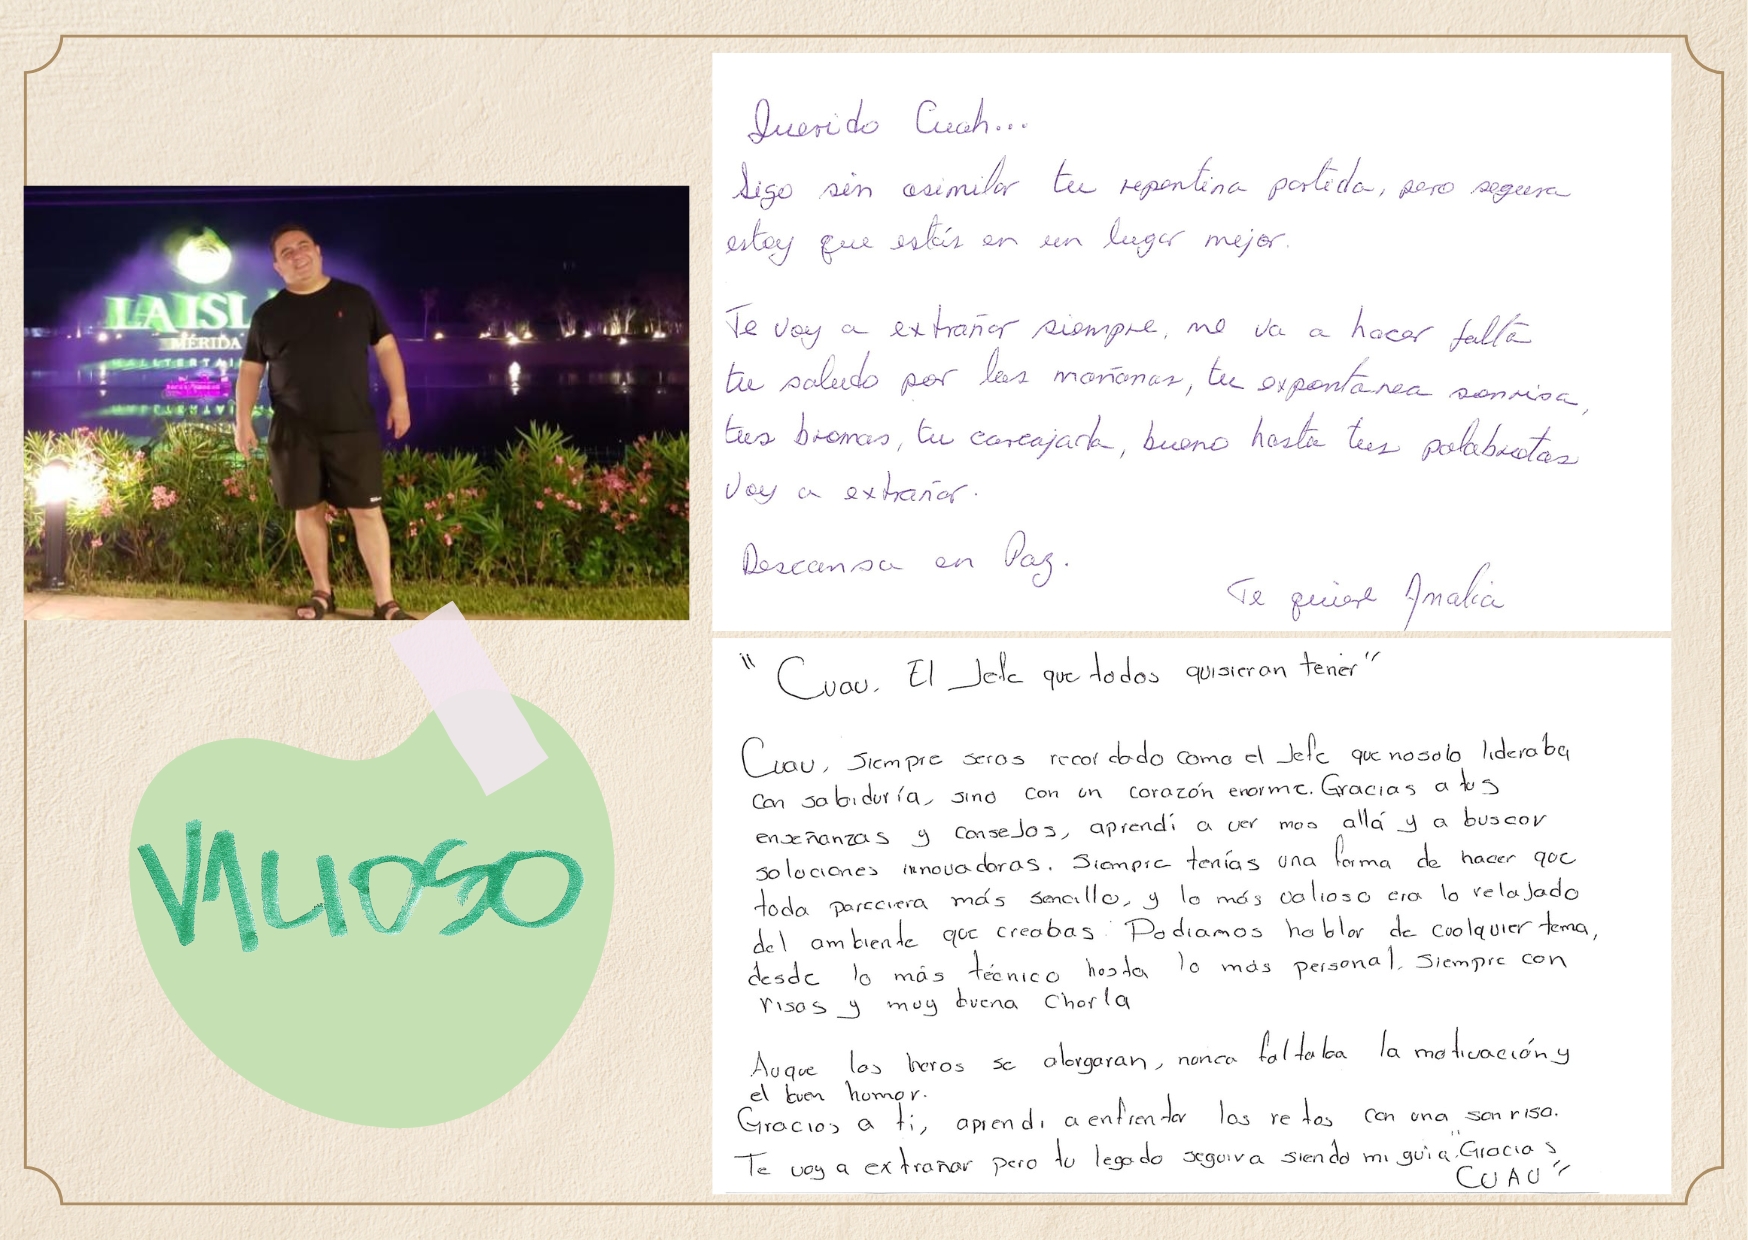 Querido Cuah...
Sigo sin asimilar tu repentina partida, pero segura
estoy que estás en un lugar mejor.
Te voy a extrañar siempre, me va a hacer falta
tu saludo por las mañanas, tu expontánea sonrisa,
tus bromas, tu carcajada, bueno hasta tus palabrotas
voy a extrañar.
Descansa en Paz.
Te quiere Amalia
LA ISL
MÉRIDA
"Cuau. El Jefe que todos quisieran tener"
Cuau, Siempre seras recordado como el Jefe que nosolo lideraba
con sabiduría, sino con un corazón enorme. Gracias a tus
enseñanzas y consejos, aprendí a ver mas allá y a buscar
soluciones innovadoras. Siempre tenías una forma de hacer que
toda pareciera más sencillo, y lo más valioso era lo relajado
del ambiente que creabas. Podiamos hablar de cualquier tema,
desde lo más técnico hasta lo más personal. Siempre con
risas y muy buena charla
Auque las horas se alargaran, nunca faltaba la motivación y
el buen humor.
Gracias a ti, aprendi a enfrentar los retos con una sonrisa.
Te voy a extrañar pero tu legado seguira siendo mi guia. "Gracias
CUAU"
VALIOSO